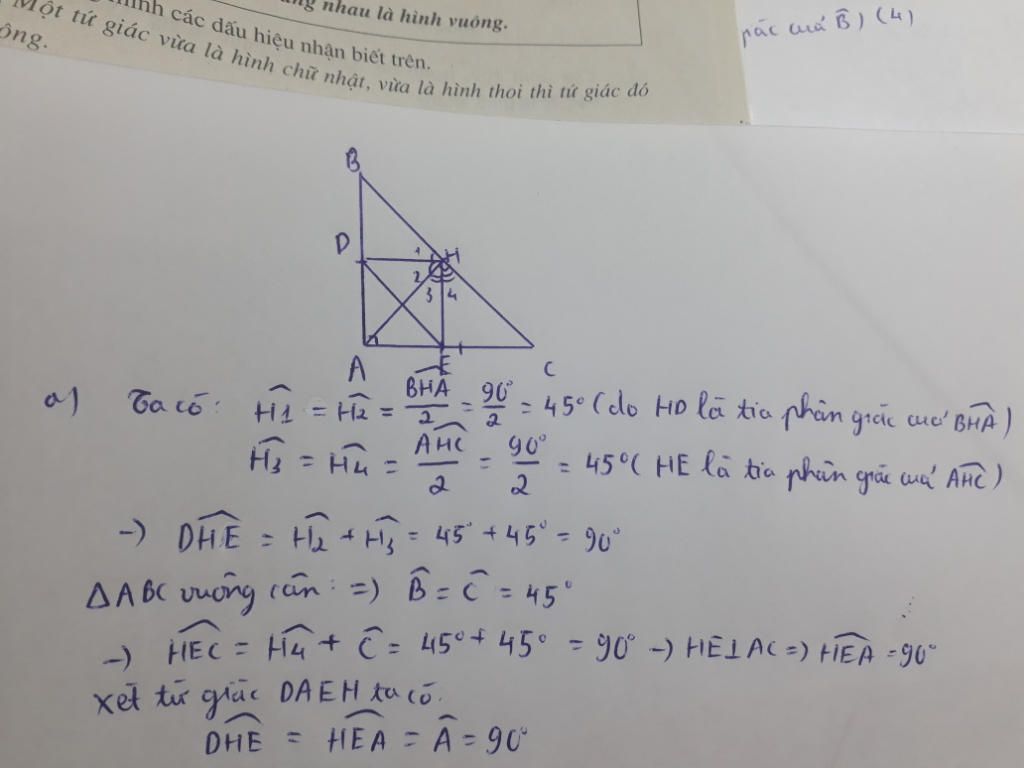 ng nhau là hình vuông.
minh các dấu hiệu nhận biết trên.
Một tứ giác vừa là hình chữ nhật, vừa là hình thoi thì tứ giác đó
ông.
B̂) (4)
B
D
1
H
2
3
4
A
E
C
a) Ta có: Ĥ1 = Ĥ2 = BHA/2 = 90°/2 = 45° (do HD là tia phân giác của BHA)
Ĥ3 = Ĥ4 = AHC/2 = 90°/2 = 45° ( HE là tia phân giác của AHC)
-) DHE = Ĥ2 + Ĥ3 = 45° + 45° = 90°
ΔABC vuông cân: =) B̂ = Ĉ = 45°
-) HEC = Ĥ4 + Ĉ = 45° + 45° = 90° -) HE⊥AC =) HEA = 90°
xét tứ giác DAEH ta có:
DHE = HEA = Â = 90°